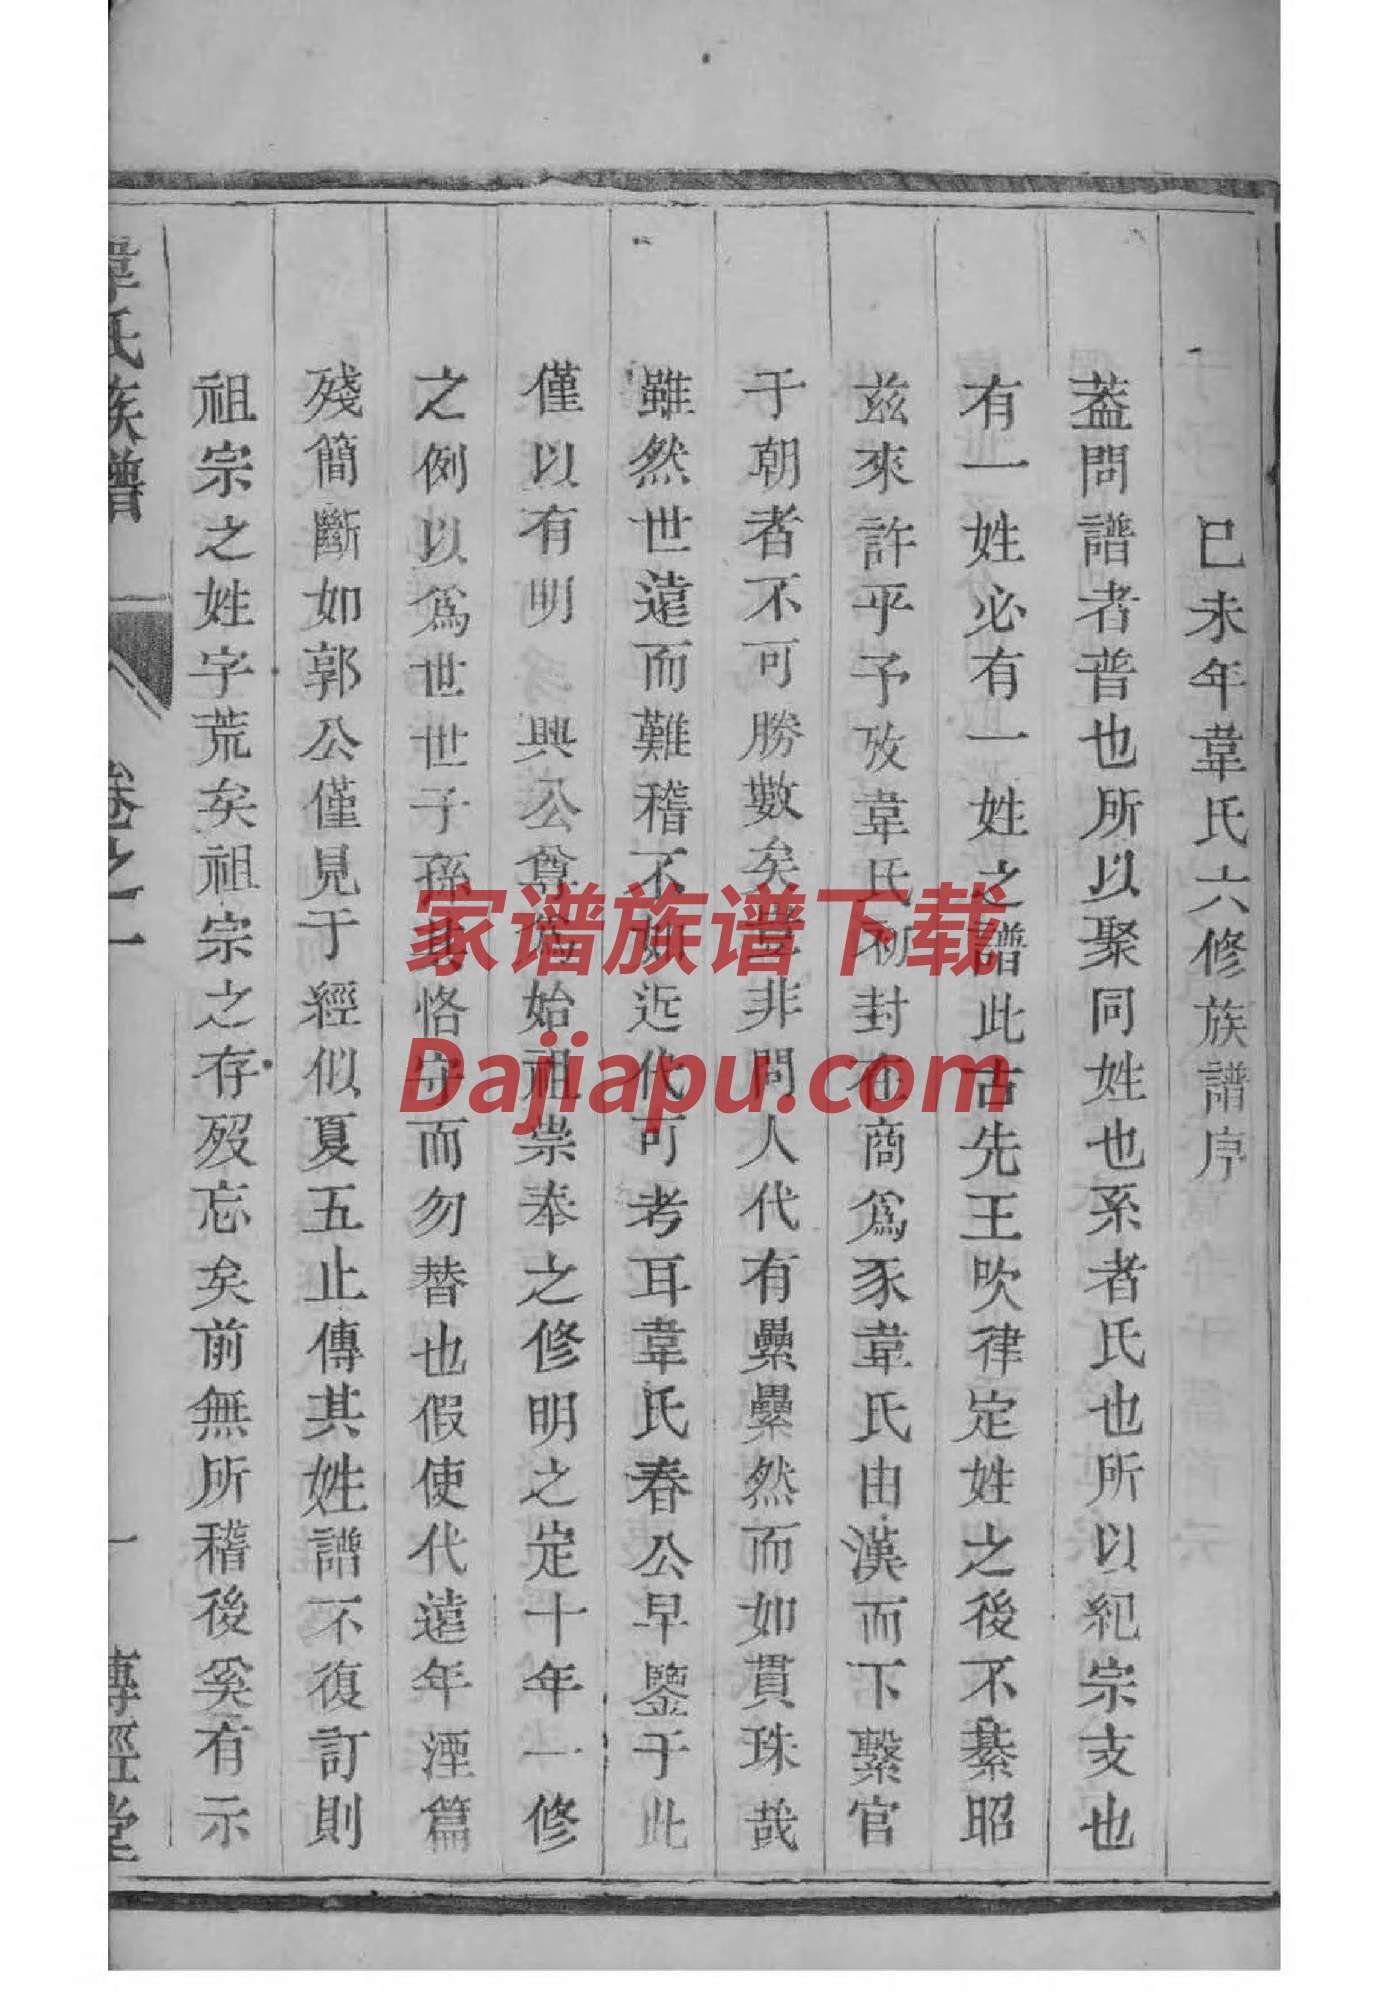 己未年韋氏六修族譜序
葢問譜者普也所以聚同姓也系者氏也所以紀宗支也
有一姓必有一姓之譜此古先王吹律定姓之後不綦昭
茲來許乎予攷韋氏初封在商爲豕韋氏由漢而下繫官
于朝者不可勝數矣豈非問人代有纍纍然而如貫珠哉
雖然世遠而難稽不如近代可考耳韋氏春公早鑒于此
僅以有明 興公尊爲始祖祟奉之修明之定十年一修
之例以爲世世子孫 恪守而勿替也假使代遠年湮篇
殘簡斷如郭公僅見于經似夏五止傳其姓譜不復訂則
祖宗之姓字荒矣祖宗之存歿忘矣前無所稽後奚有示
韋氏族譜 卷之一 一 傳經堂
家谱族谱下载
Dajiapu.com